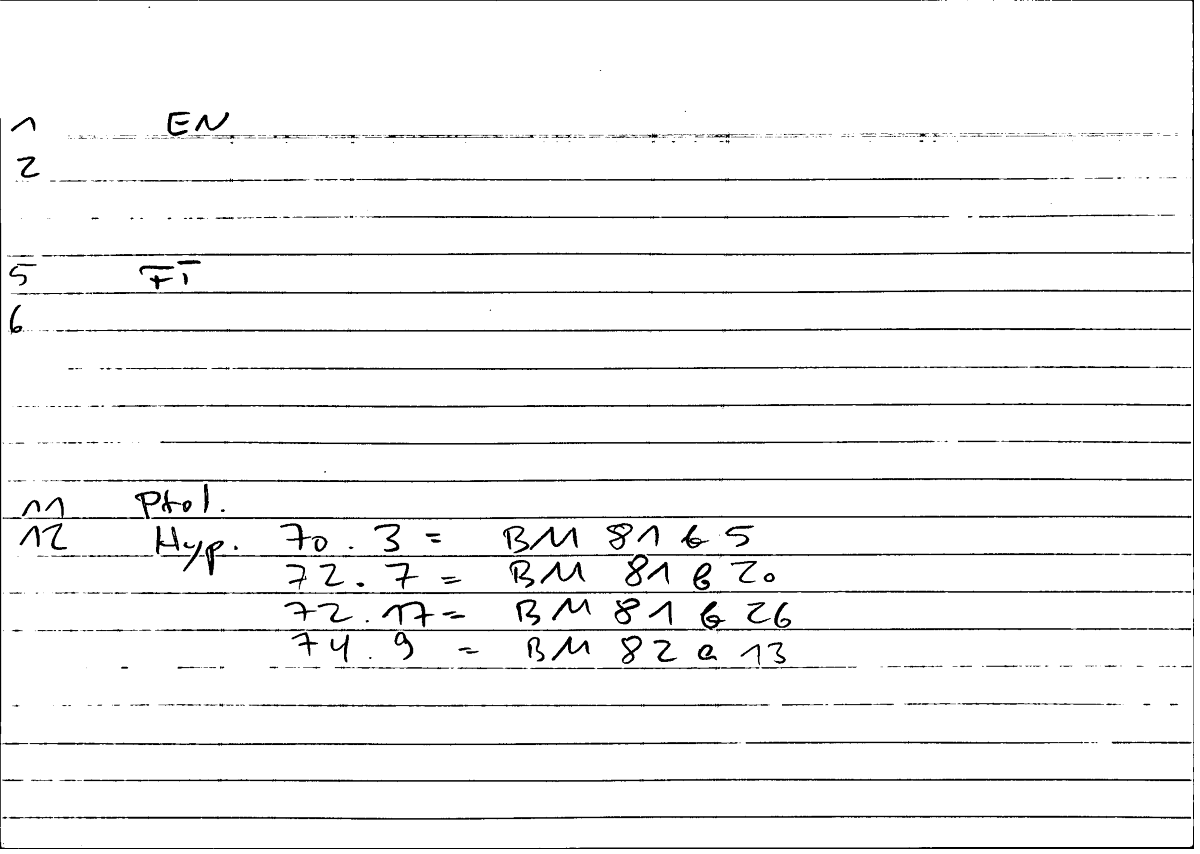 1 EN
2
5 FT
6
11 Ptol.
12 Hyp. 70.3 = BM 81 b 5
72.7 = BM 81 b 20
72.17 = BM 81 b 26
74.9 = BM 82 a 13